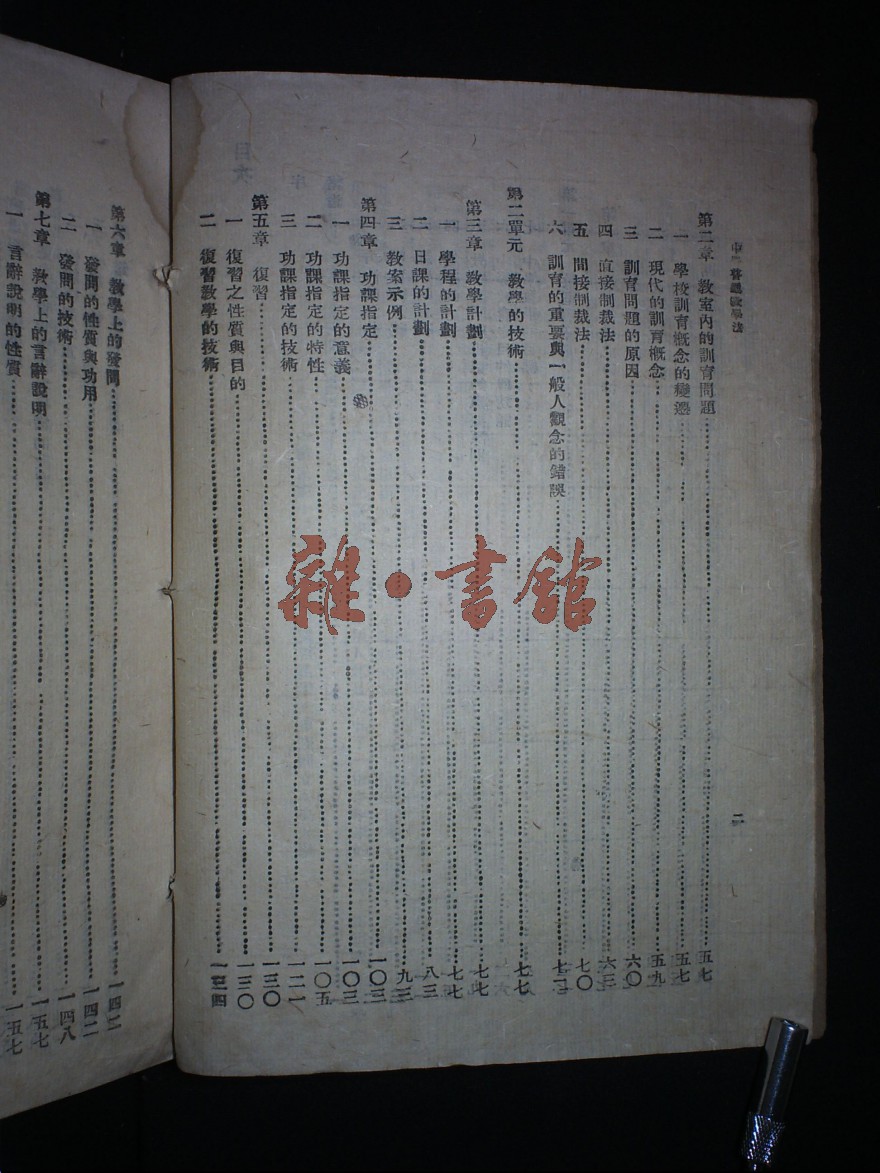 中等普通教學法
二
第二章 教室內的訓育問題 五七
一 學校訓育概念的變遷 五七
二 現代的訓育概念 五九
三 訓育問題的原因 六〇
四 直接制裁法 六三
五 間接制裁法 七〇
六 訓育的重要與一般人觀念的錯誤
第二單元 教學的技術 七七
第三章 教學計劃 七七
一 學程的計劃 七七
二 日課的計劃 八三
三 教案示例 九三
第四章 功課指定 一〇三
一 功課指定的意義 一〇三
二 功課指定的特性 一〇五
三 功課指定的技術 一二一
第五章 復習 一三〇
一 復習之性質與目的 一三〇
二 復習教學的技術 一三四
第六章 教學上的發問 一四二
一 發問的性質與功用 一四二
二 發問的技術 一四八
第七章 教學上的言辭說明 一五七
一 言辭說明的性質 一五七
目次
雜·書館